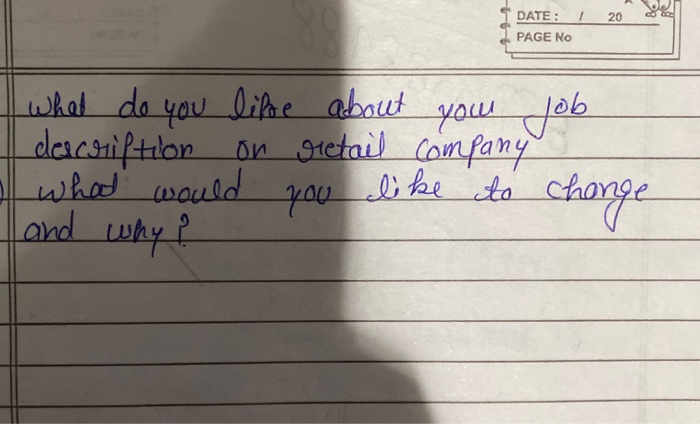 DATE: / 20
PAGE No
what do you like about your job
description on retail company
what would you like to change
and why?